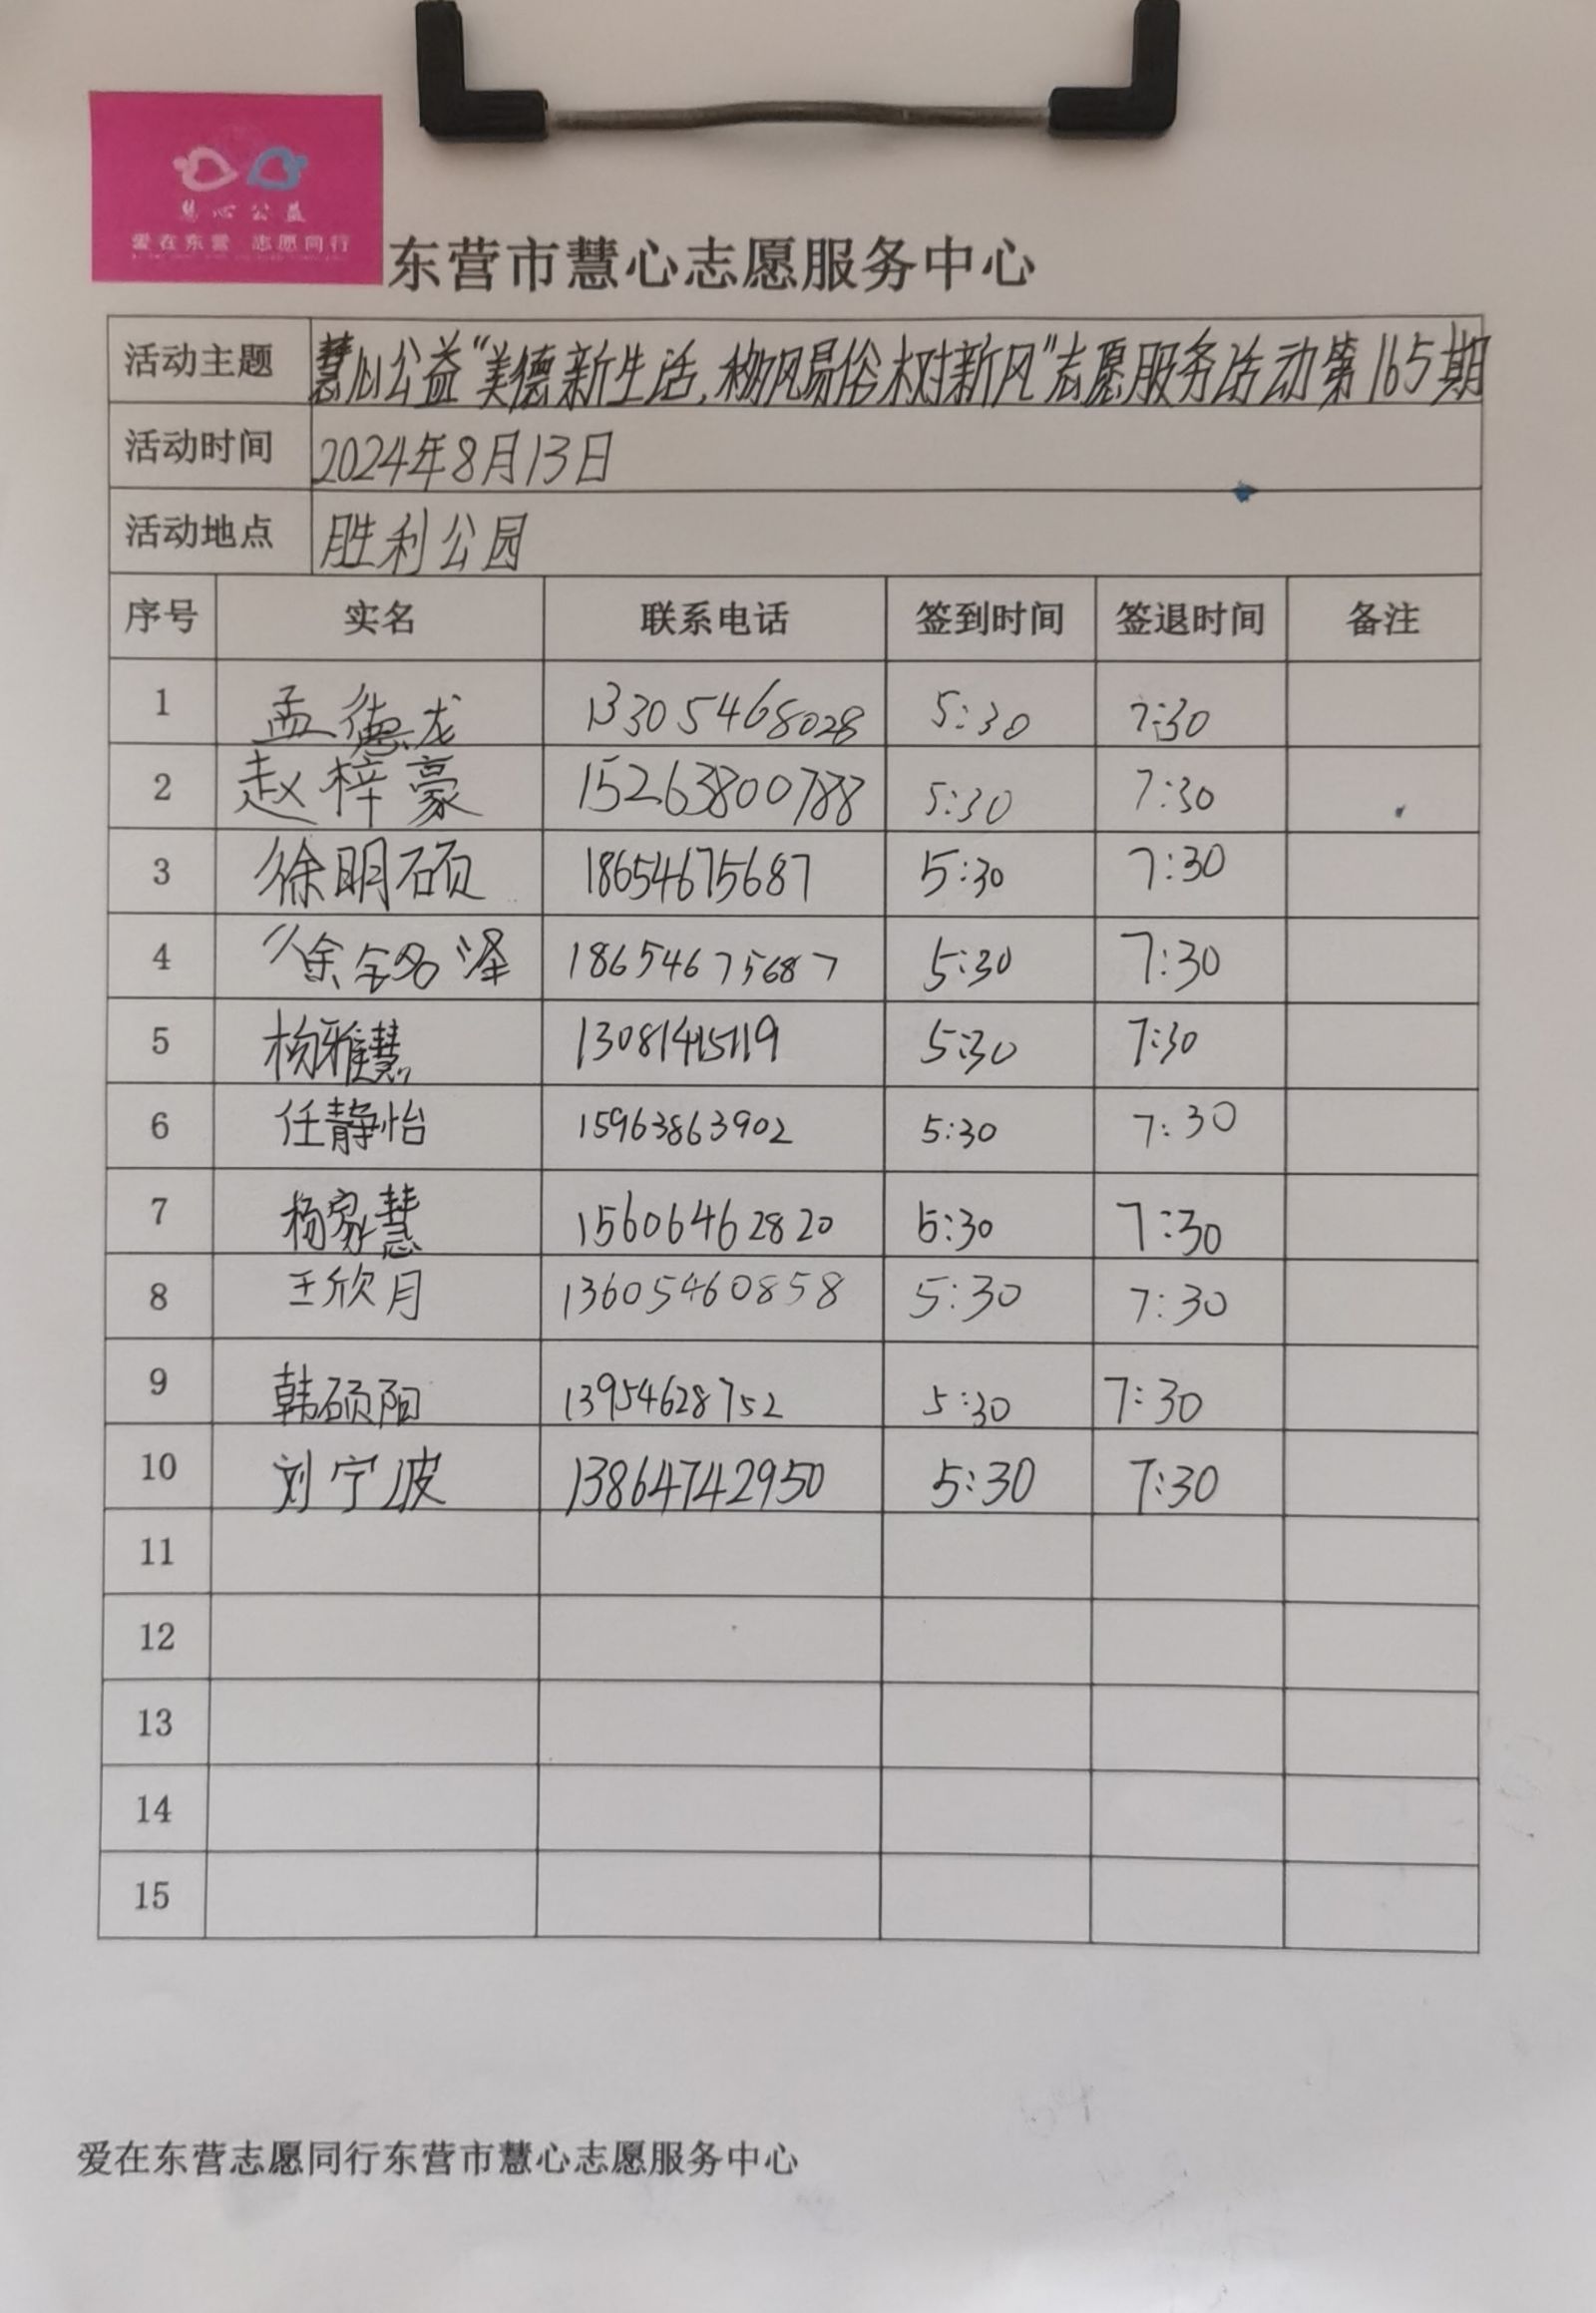 慧心公益
爱在东营 志愿同行
东营市慧心志愿服务中心
活动主题 慧心公益“美德新生活,移风易俗树新风”志愿服务活动第165期
活动时间 2024年8月13日
活动地点 胜利公园
序号 实名 联系电话 签到时间 签退时间 备注
1 孟德龙 13305468028 5:30 7:30
2 赵梓豪 15263800788 5:30 7:30
3 徐明硕 18654675687 5:30 7:30
4 徐铭泽 18654675687 5:30 7:30
5 杨雅慧 5:30 7:30
6 任静怡 15963863902 5:30 7:30
7 杨家慧 15606462820 5:30 7:30
8 王欣月 13605460858 5:30 7:30
9 韩硕阳 13954628752 5:30 7:30
10 刘宁波 13864742950 5:30 7:30
11
12
13
14
15
爱在东营志愿同行东营市慧心志愿服务中心